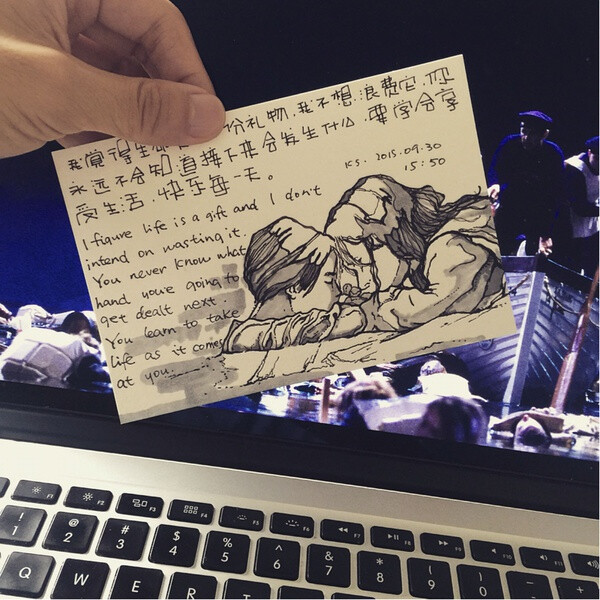 我觉得生 份礼物,我不想浪费它,你
永远不会知道接下来会发生什么,要学会享
受生活,快乐每一天。
KS. 2015.09.30
15:50
I figure life is a gift and I don't
intend on wasting it.
You never know what
hand you're going to
get dealt next.
You learn to take
life as it comes
at you.
F1 F2 F3 F4 F5 F6 F7 F8 F9 F10 F11
! @ # $ % ^ & * ( ) _ +
1 2 3 4 5 6 7 8 9 0 - =
Q W E R T Y U I O P